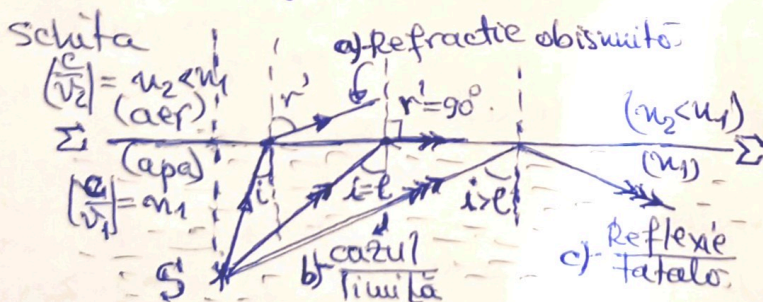 Schița
a)-Refracție obișnuită.
(c/v₂) = n₂ < n₁
(aer)
r'
r'=90°
(n₂<n₁)
Σ
Σ
(apa)
(n₁)
(c/v₁) = n₁
i
i=l
i>l
S
b) cazul limită
c)-Reflexie totală.